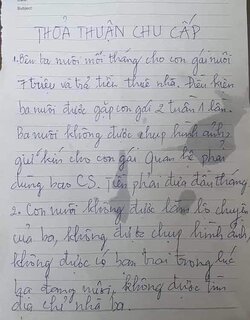 THỎA THUẬN CHU CẤP
1. Bên ba nuôi mỗi tháng cho con gái nuôi
7 triệu và trả tiền thuê nhà. Điều kiện
ba nuôi được gặp con gái 2 tuần 1 lần.
Ba nuôi không được chụp hình ảnh,
giữ kín cho con gái. Quan hệ phải
dùng bao CS. Tiền phải đưa đầu tháng
2. Con nuôi không được làm lộ chuyện
của ba, không được chụp hình ảnh,
không được có bạn trai trong lúc
ba đang nuôi, không được tìm
địa chỉ nhà ba.